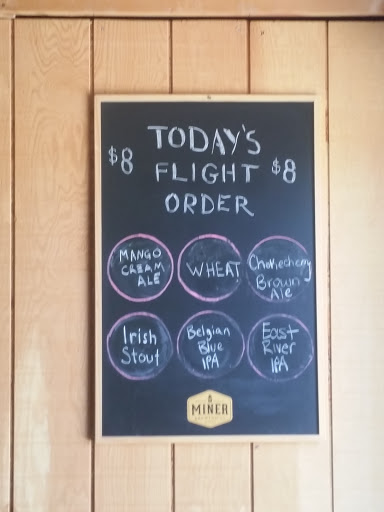 TODAY'S
$8 FLIGHT $8
ORDER
MANGO
CREAM
ALE
WHEAT
Chokecherry
Brown
Ale
Irish
Stout
Belgian
Blue
IPA
East
River
IPA
MINER